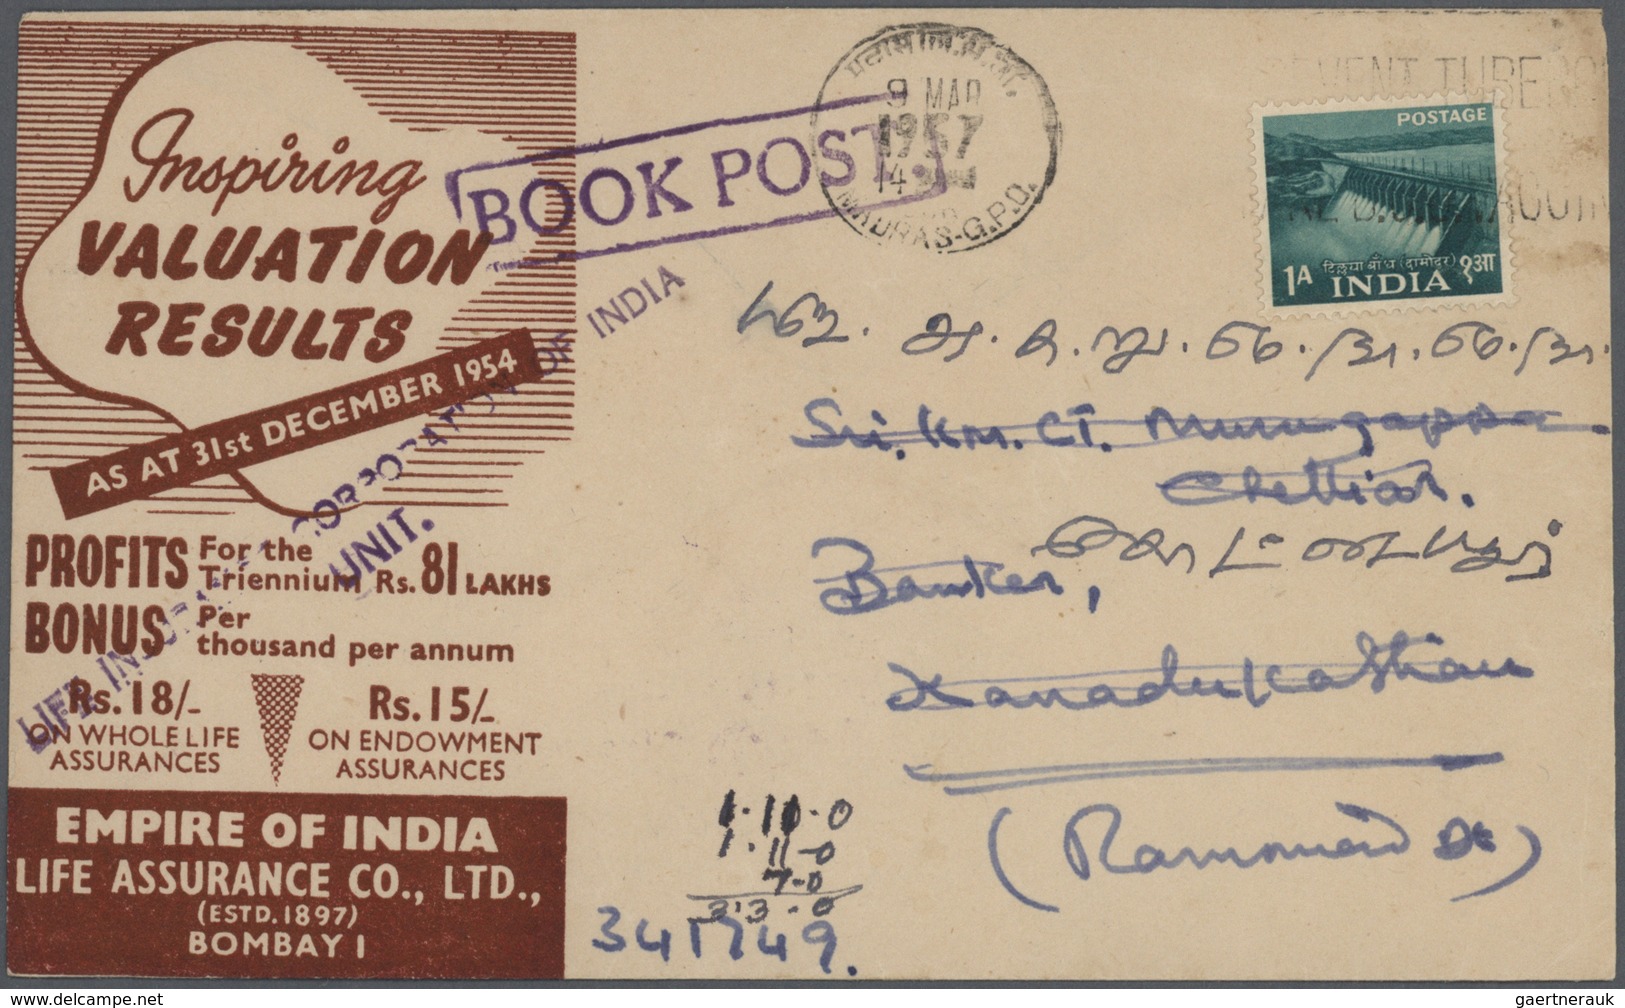 Inspiring
VALUATION
RESULTS
AS AT 31st DECEMBER 1954
PROFITS For the Triennium Rs. 81 LAKHS
BONUS Per thousand per annum
Rs. 18/-
ON WHOLE LIFE
ASSURANCES
Rs. 15/-
ON ENDOWMENT
ASSURANCES
EMPIRE OF INDIA
LIFE ASSURANCE CO., LTD.,
(ESTD. 1897)
BOMBAY 1
BOOK POST.
LIFE INSURANCE CORPORATION OF INDIA
UNIT.
9 MAR
1957
14
MADRAS-G.P.O.
VENT TUBER
POSTAGE
दिलैया बाँध (दामोदर)
1A INDIA १आ
Sri. Km. CT. Murugappa
Chettiar.
Banker,
Kanadukathan
(Ramnad Dt)
1.11.0
1.11-0
7-0
3.3.0
341749.
gaertnerauk